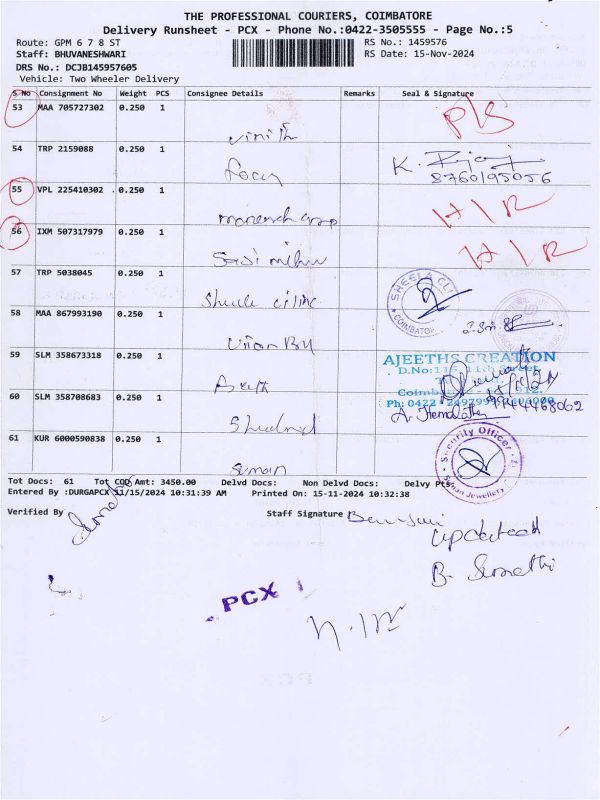 THE PROFESSIONAL COURIERS, COIMBATORE
Delivery Runsheet - PCX - Phone No.:0422-3505555 - Page No.:5
Route: GPM 6 7 8 ST
RS No.: 1459576
Staff: BHUVANESHWARI
RS Date: 15-Nov-2024
DRS No.: DCJB145957605
Vehicle: Two Wheeler Delivery
S No Consignment No Weight PCS Consignee Details Remarks Seal & Signature
53 MAA 705727302 0.250 1
vinith
54 TRP 2159088 0.250 1
K.
8760195056
55 VPL 225410302 0.250 1
56 IXM 507317979 0.250 1
57 TRP 5038045 0.250 1
SHEELA CLI
COIMBATOR
58 MAA 867993190 0.250 1
59 SLM 358673318 0.250 1
AJEETHS CREATION
60 SLM 358708683 0.250 1
A. Hemalatha 9944468062
61 KUR 6000590838 0.250 1
Suman
Security Officer
Suman Jewellers
Tot Docs: 61 Tot COD Amt: 3450.00 Delvd Docs: Non Delvd Docs: Delvy Pts:
Entered By :DURGAPCX 11/15/2024 10:31:39 AM Printed On: 15-11-2024 10:32:38
Verified By Staff Signature
updated
B. Sumathi
PCX